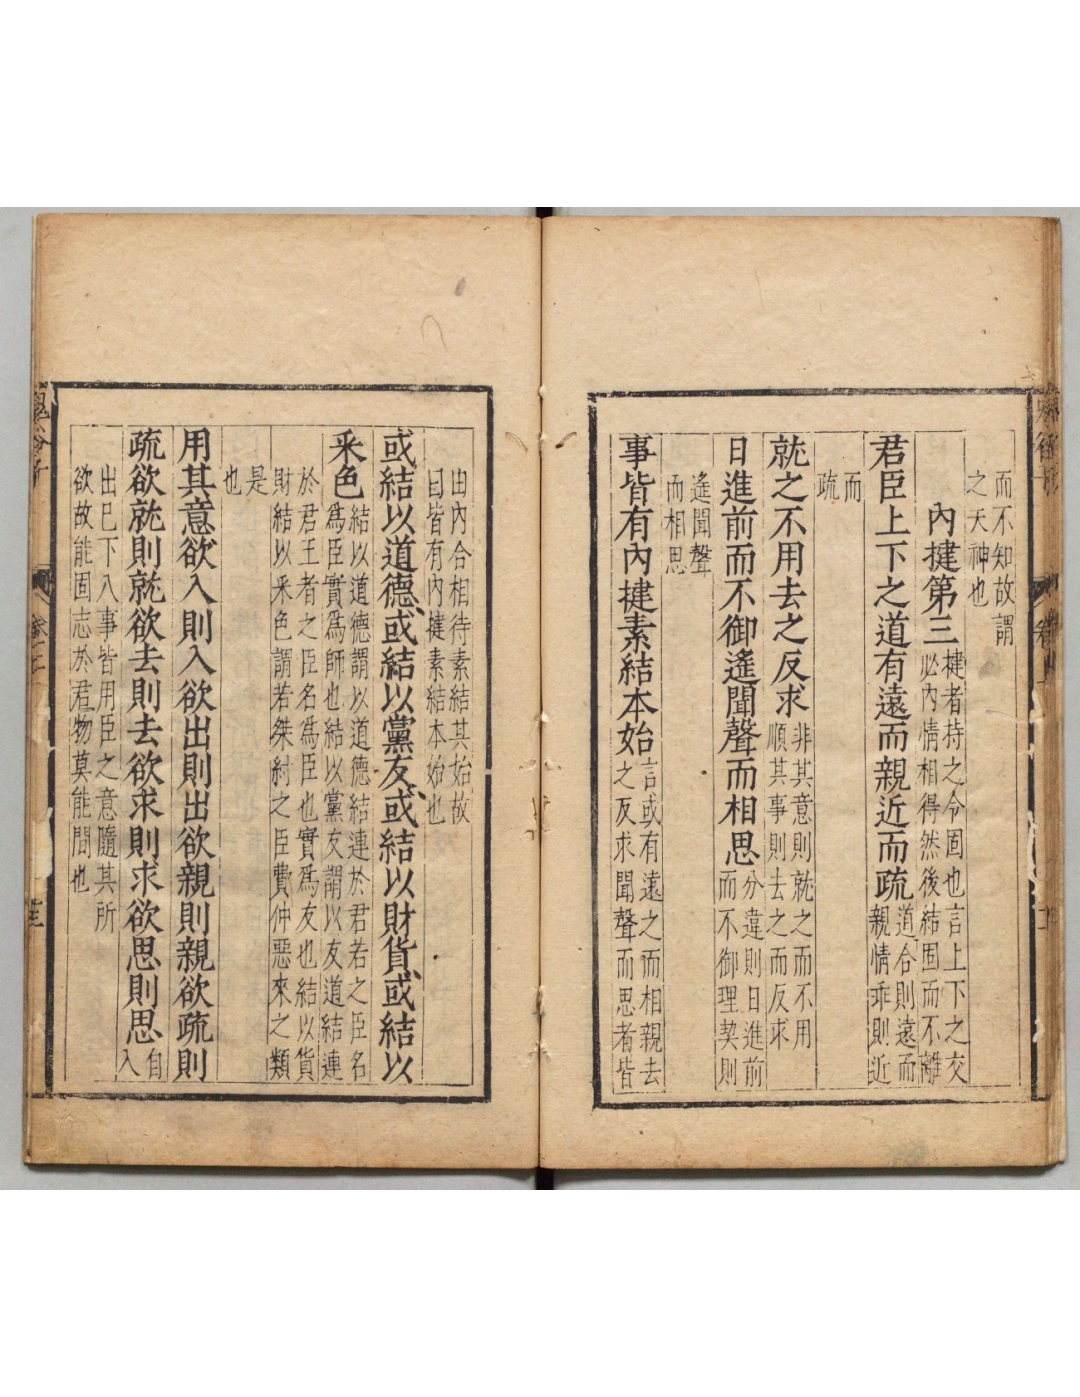 而不知故謂
之天神也
內揵第三
揵者持之令固也言上下之交
必內情相得然後結固而不離
君臣上下之道有遠而親近而疏
道合則遠而
親情乖則近
而
疏
就之不用去之反求
非其意則就之而不用
順其事則去之而反求
日進前而不御遙聞聲而相思
分違則日進前
而不御理契則
遙聞聲
而相思
事皆有內揵素結本始
言或有遠之而相親去
之反求聞聲而思者皆
由內合相待素結其始故
曰皆有內揵素結本始也
或結以道德或結以黨友或結以財貨或結以
采色
結以道德謂以道德結連於君若之臣名
爲臣實爲師也結以黨友謂以友道結連
於君王者之臣名爲臣也實爲友也結以貨
財結以采色謂若桀紂之臣費仲惡來之類
是
也
用其意欲入則入欲出則出欲親則親欲疏則
疏欲就則就欲去則去欲求則求欲思則思
自
入
出已下八事皆用臣之意隨其所
欲故能固志於君物莫能間也